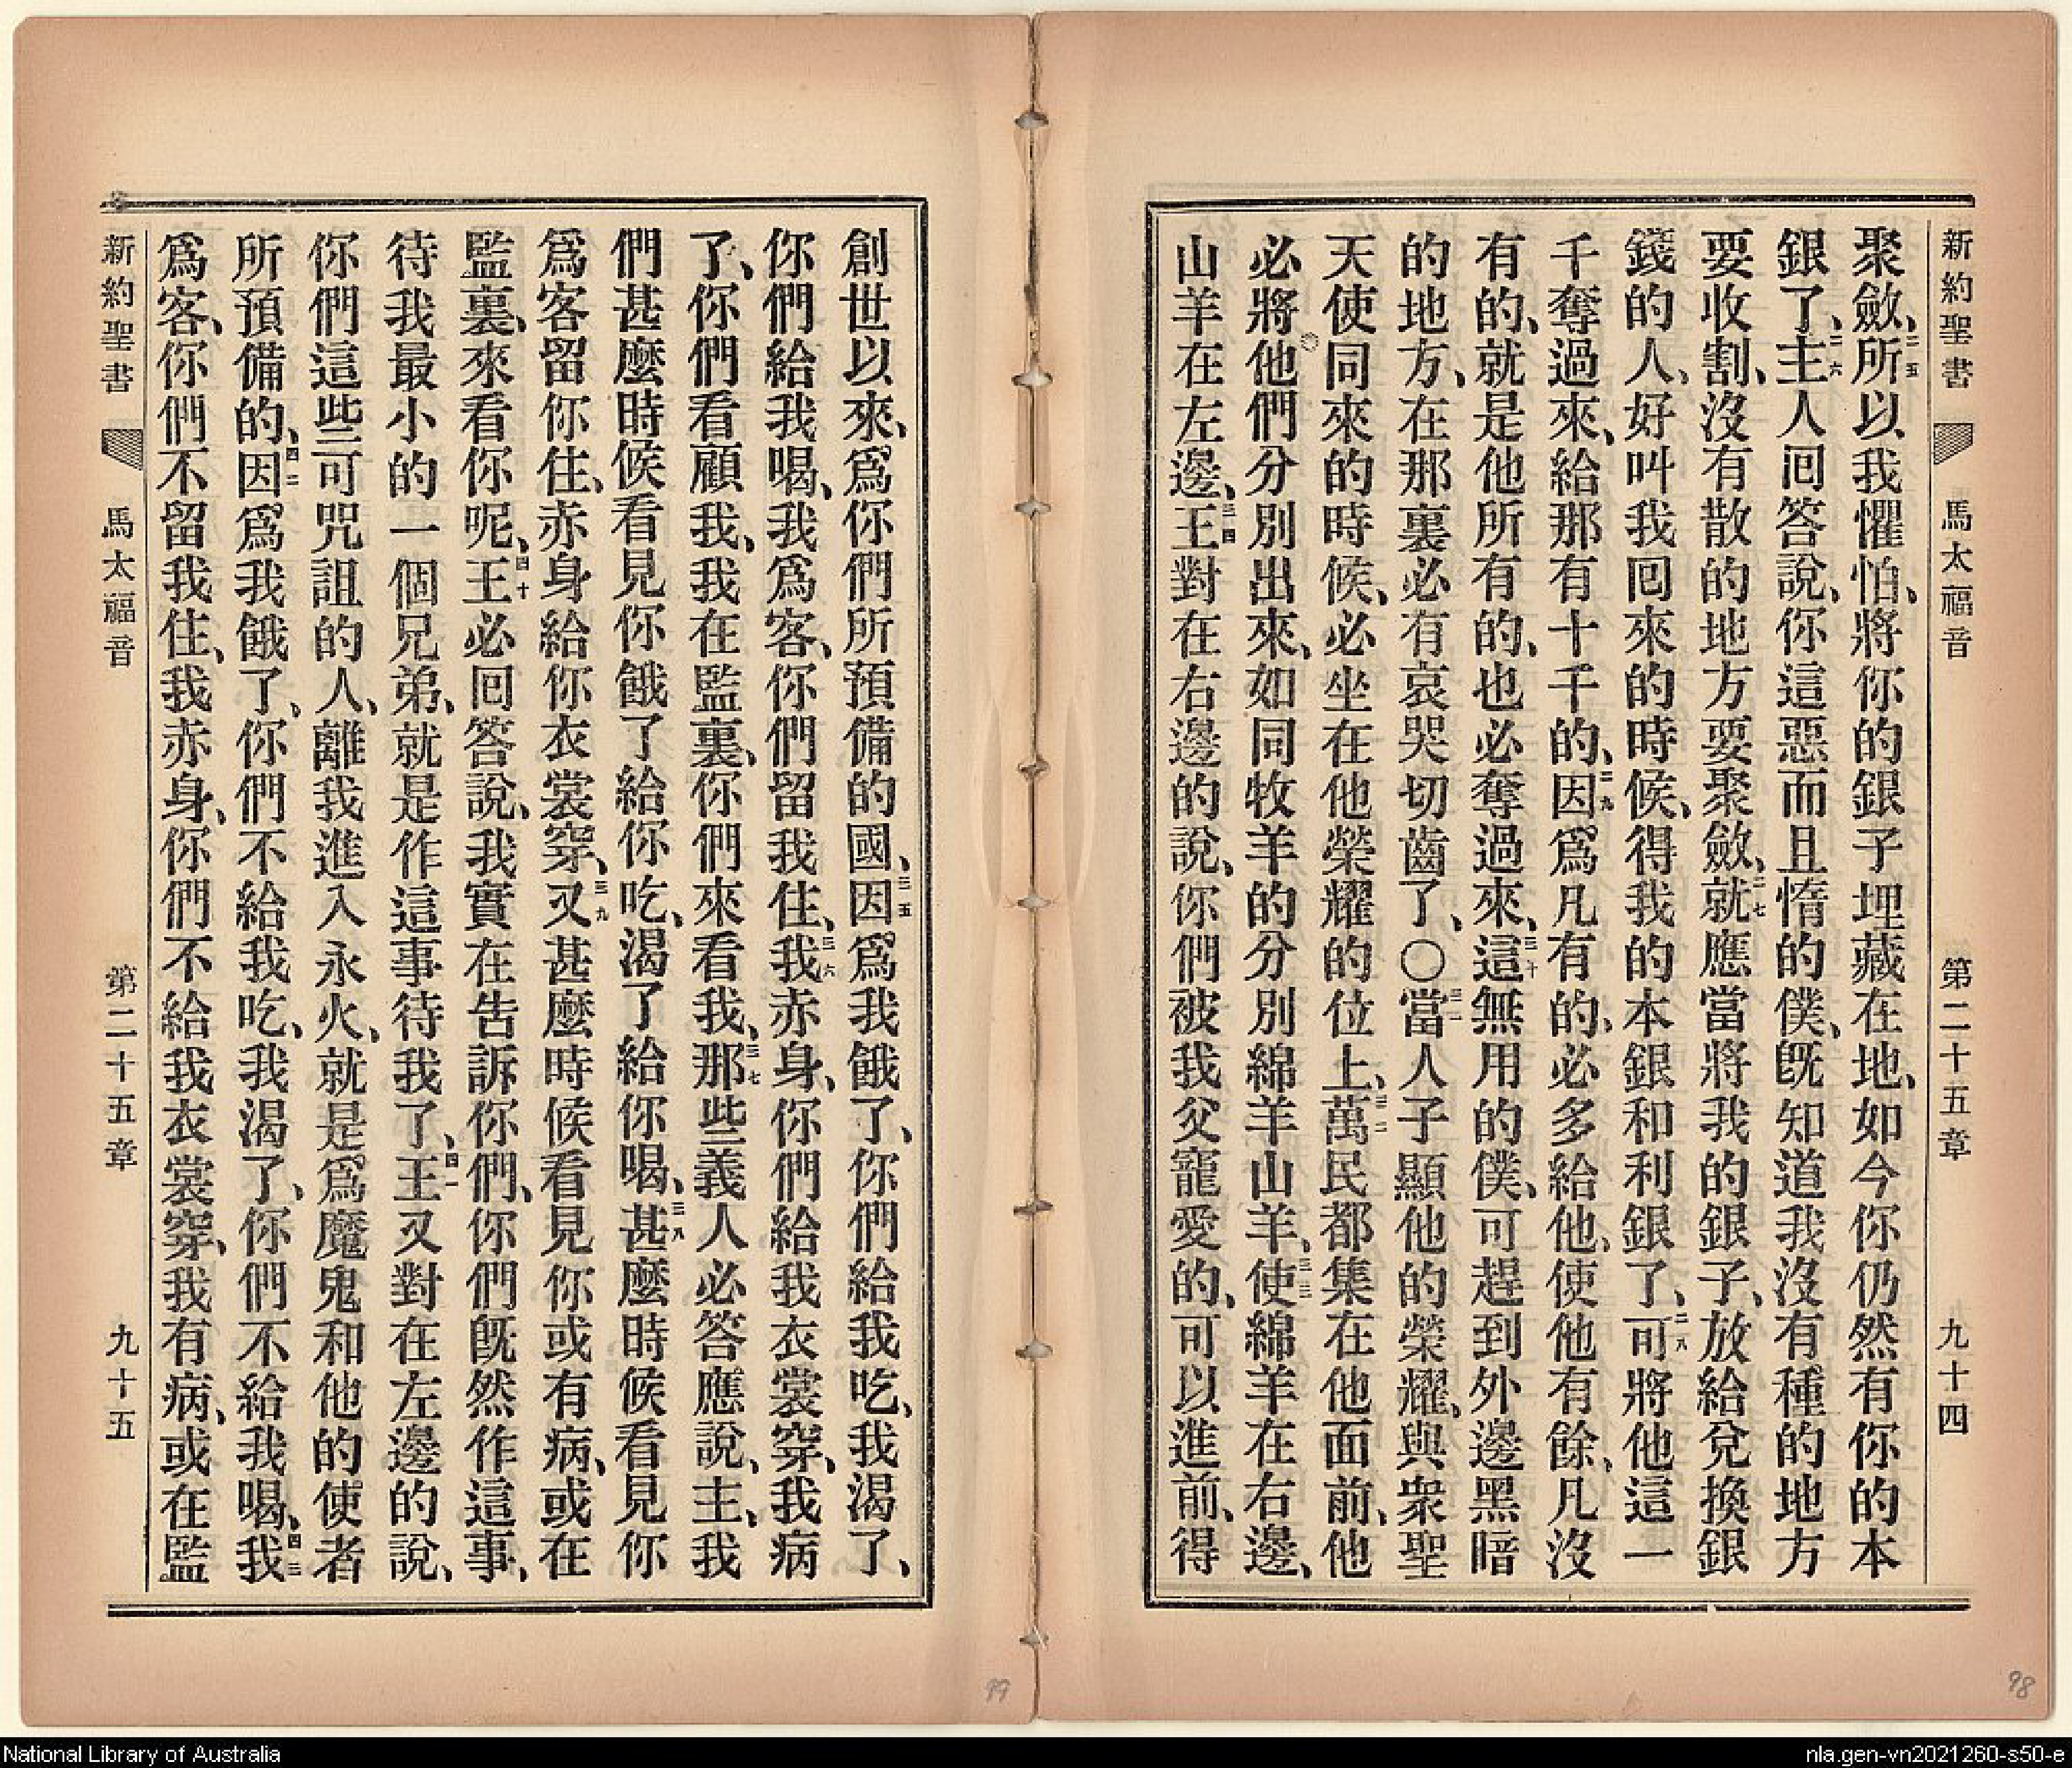 新約聖書 馬太福音 第二十五章 九十四
聚斂、二五所以我懼怕、將你的銀子埋藏在地、如今你仍然有你的本
銀了、二六主人囘答說、你這惡而且惰的僕、旣知道我沒有種的地方
要收割、沒有散的地方要聚斂、二七就應當將我的銀子、放給兌換銀
錢的人、好叫我囘來的時候、得我的本銀和利銀了、二八可將他這一
千奪過來、給那有十千的、二九因爲凡有的、必多給他、使他有餘、凡沒
有的、就是他所有的、也必奪過來、三十這無用的僕、可趕到外邊黑暗
的地方、在那裏必有哀哭切齒了、〇三一當人子顯他的榮耀、與衆聖
天使同來的時候、必坐在他榮耀的位上、三二萬民都集在他面前、他
必將他們分別出來、如同牧羊的分別綿羊山羊、三三使綿羊在右邊、
山羊在左邊、三四王對在右邊的說、你們被我父寵愛的、可以進前、得
創世以來、爲你們所預備的國、三五因爲我餓了、你們給我吃、我渴了、
你們給我喝、我爲客、你們留我住、三六我赤身、你們給我衣裳穿、我病
了、你們看顧我、我在監裏、你們來看我、三七那些義人必答應說、主、我
們甚麼時候看見你餓了給你吃、渴了給你喝、三八甚麼時候看見你
爲客留你住、赤身給你衣裳穿、三九又甚麼時候看見你或有病、或在
監裏、來看你呢、四十王必囘答說、我實在告訴你們、你們旣然作這事、
待我最小的一個兄弟、就是作這事待我了、四一王又對在左邊的說、
你們這些可咒詛的人、離我進入永火、就是爲魔鬼和他的使者
所預備的、四二因爲我餓了、你們不給我吃、我渴了、你們不給我喝、四三我
爲客、你們不留我住、我赤身、你們不給我衣裳穿、我有病、或在監
新約聖書 馬太福音 第二十五章 九十五
99
98
National Library of Australia
nla.gen-vn2021260-s50-e